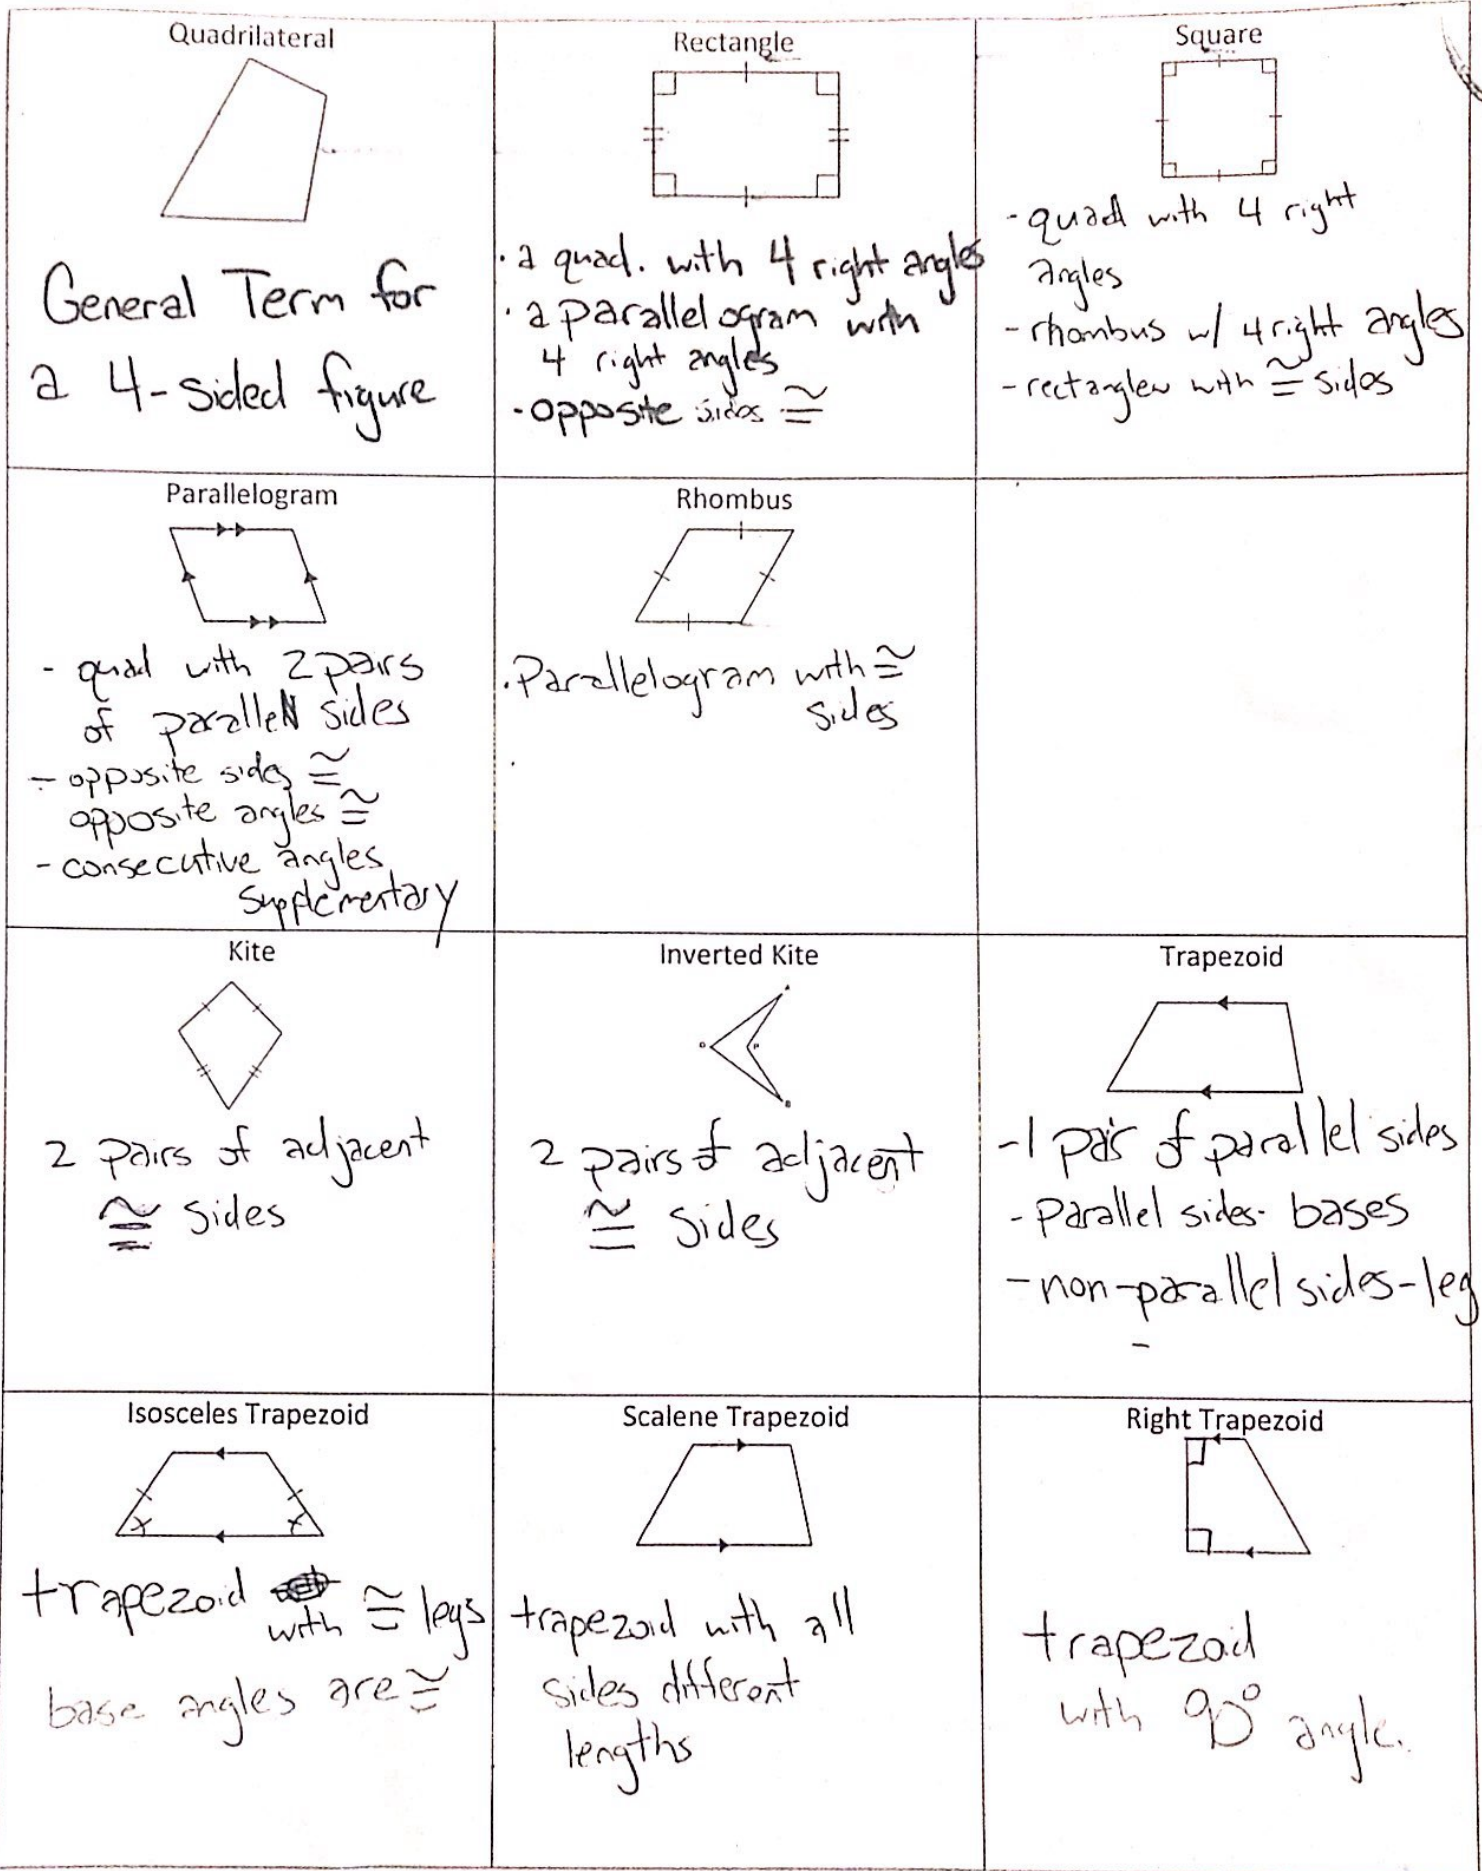 Quadrilateral
General Term for
a 4-sided figure
Rectangle
· a quad. with 4 right angles
· a parallelogram with
4 right angles
- opposite sides ≅
Square
- quad with 4 right
angles
- rhombus w/ 4 right angles
- rectangle with ≅ sides
Parallelogram
- quad with 2 pairs
of parallel sides
- opposite sides ≅
opposite angles ≅
- consecutive angles
supplementary
Rhombus
· Parallelogram with ≅
sides
Kite
2 pairs of adjacent
≅ sides
Inverted Kite
2 pairs of adjacent
≅ sides
Trapezoid
- 1 pair of parallel sides
- Parallel sides - bases
- non-parallel sides - leg
Isosceles Trapezoid
trapezoid with ≅ legs
base angles are ≅
Scalene Trapezoid
trapezoid with all
sides different
lengths
Right Trapezoid
trapezoid
with 90° angle.